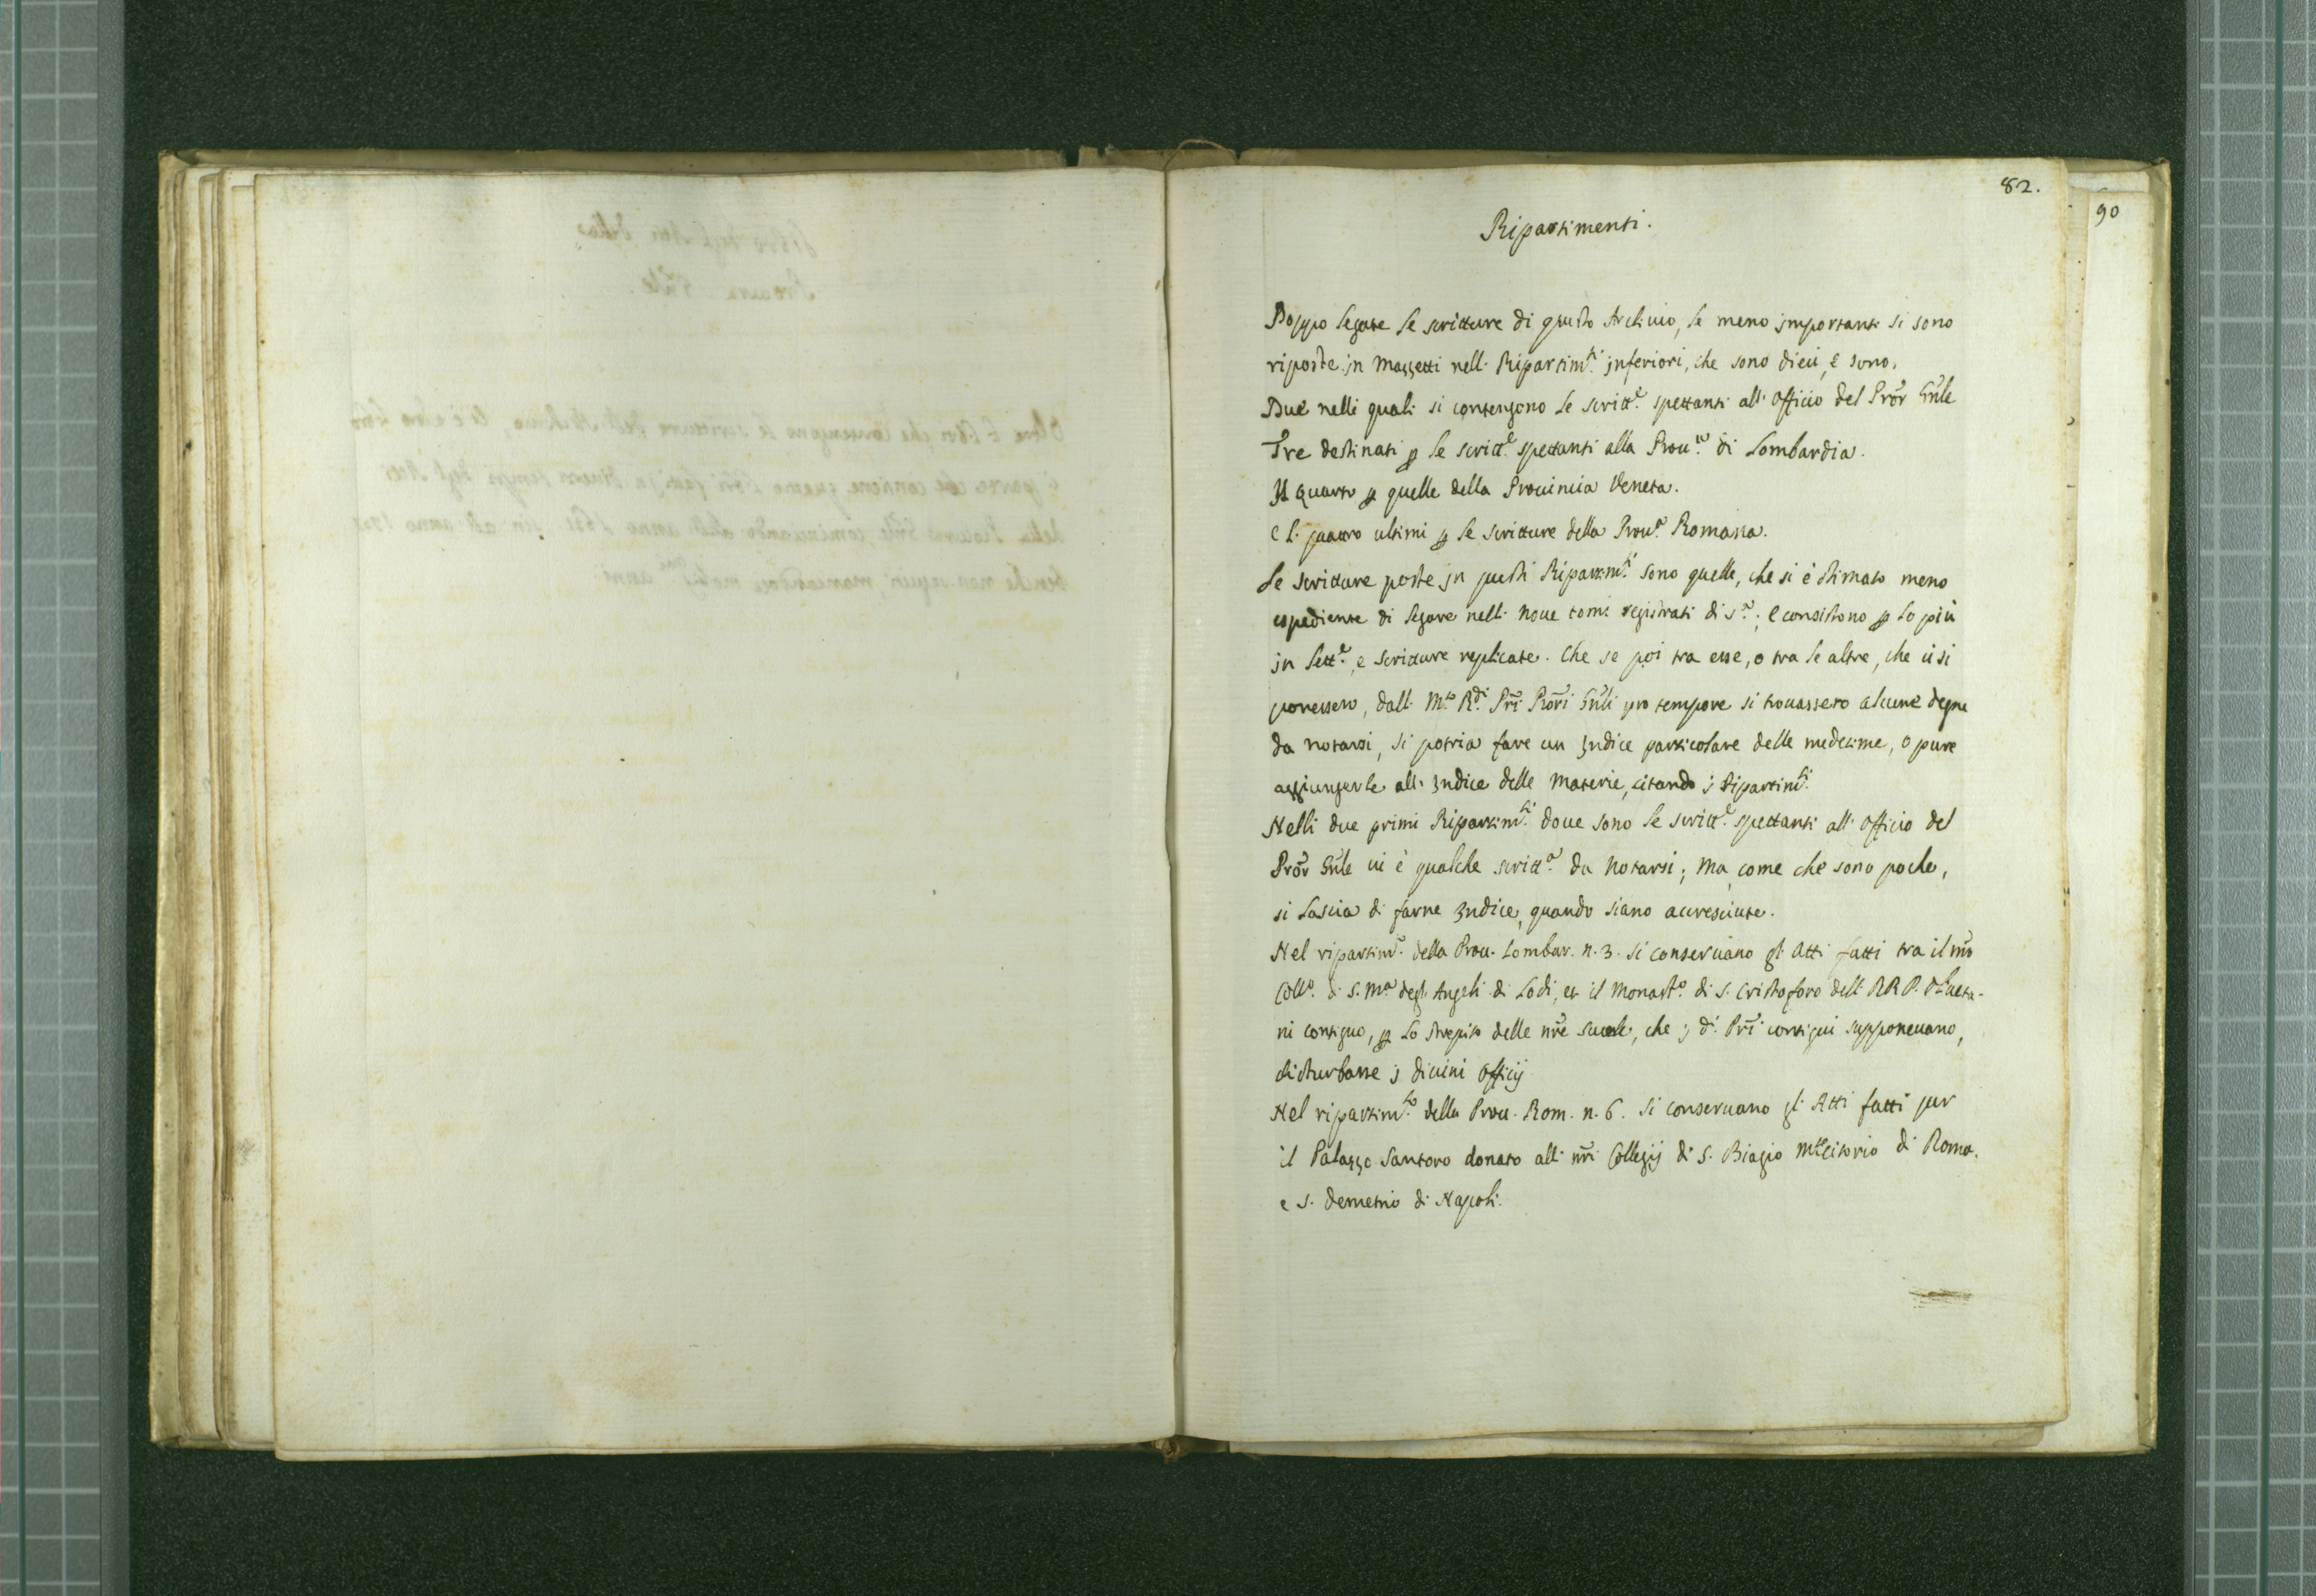 82.
90
Ripartimenti.
Doppo legate le scritture di questo Archivio, le meno importanti si sono
riposte in mazzetti nelli Ripartim.ti inferiori, che sono dieci, e sono.
Due nelli quali si contengono le scritt.e spettanti all'Officio del Pror Gñle
Tre destinati p le scritt.e spettanti alla Prou.a di Lombardia.
Il quarto p quelle della Prouincia Veneta.
e li quattro ultimi p le scritture della Prou.a Romana.
Le scritture poste in questi Ripartim.ti sono quelle, che si è stimato meno
espediente di legare nelli noue tomi registrati di s.a; e consistono p lo più
in lett.e, e scritture replicate. Che se poi tra esse, o tra le altre, che ui si
ponessero, dalli M.to R.di Pri Prori Gñli pro tempore si trouassero alcune degne
da notarsi, si potria fare un Indice particolare delle medesime, o pure
aggiungerle all'Indice delle materie, citando i Ripartim.ti
Nelli due primi Ripartim.ti doue sono le scritt.e spettanti all'Officio del
Pror Gñle ui è qualche scritt.a da notarsi; ma come che sono poche,
si lascia di farne Indice, quando siano accresciute.
Nel ripartim.o della Prou. Lombar. n. 3. si conseruano gli Atti fatti tra il nro
Coll.o di S. Ma degli Angeli di Lodi, et il Monast.o di S. Cristoforo delli RR P. Oliueta-
ni contiguo, p lo strepito delle nre scuole, che i d.i Pri contigui supponeuano,
disturbasse i diuini Officij
Nel ripartim.to della Prou. Rom. n. 6. si conseruano gli Atti fatti per
il Palazzo Santoro donato alli nri Collegij di S. Biagio Mtecitorio di Roma.
e S. Demetrio di Napoli.